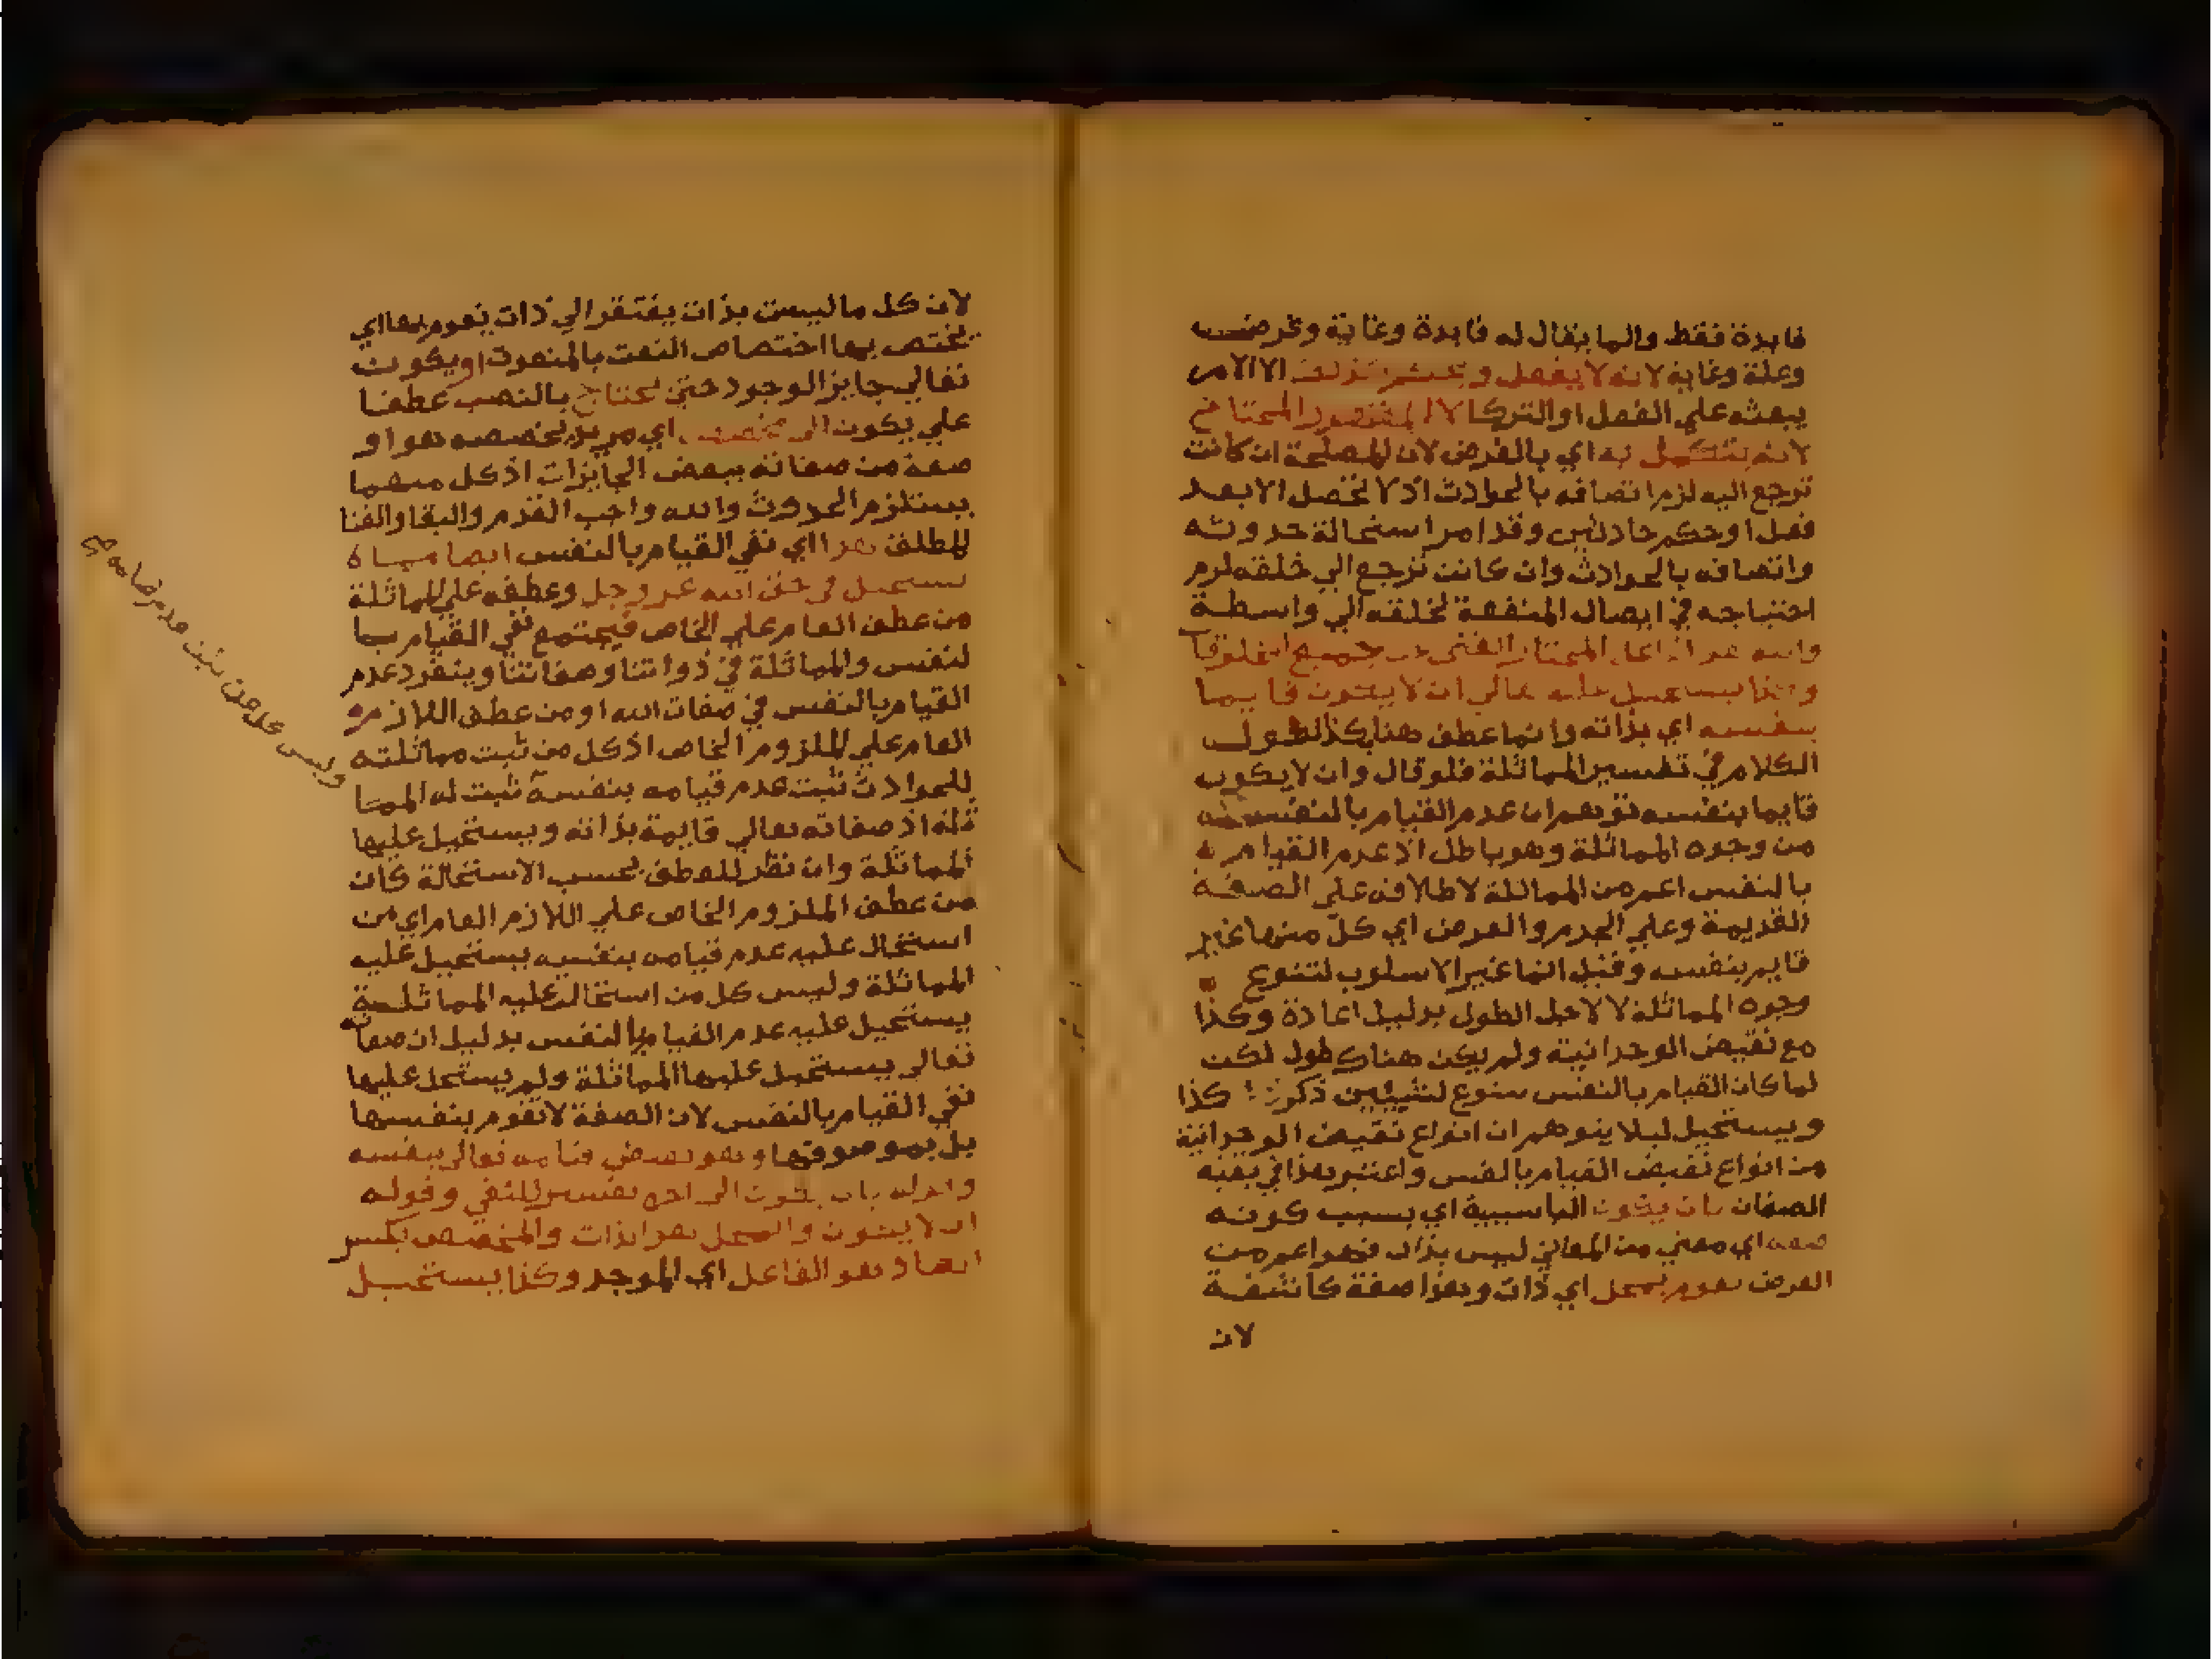 فايدة فقط والها يقال له فايدة وغاية وغرض
وعلة وغاية لانه لا يفعل الا لامر
يبعثه علي الفعل او التركا لا المحتاج
لانه به اي بالغرض لان المصلحة ان كانت
ترجع اليه لزم اتصافه بالحوادث اذ لا تحصل الا بعد
فعل او حكم حادثين وقد امر استحالة حدوثه
واتصافه بالحوادث وان كانت ترجع الي خلقه لزم
احتياجه في ايصال المنفعة لخلقه الي واسطة
والله هو الفاعل المختار الغني عن جميع المخلوقا
وهذا يستحيل عليه تعالي ان لا يكون قايما
بنفسه اي بذاته وانما عطف هنا بكذا لطول
الكلام في تفسير المماثلة فلو قال وان لا يكون
قايما بنفسه توهم ان عدم القيام بالنفس
من وجوه المماثلة وهو باطل اذ عدم القيام
بالنفس اعم من المماثلة لاطلاقه علي الصفة
القديمة وعلي الجرم والعرض اي كل منها غير
قايم بنفسه وقيل انما غير الاسلوب لتنوع
وجوه المماثلة لا لاجل الطول بدليل اعادة وكذا
مع نقيض الوحدانية ولم يكن هناك طول لكن
لما كان القيام بالنفس متنوع لشيئين ذكر كذا
ويستحيل ليلا يتوهم ان انواع نقيض الوحدانية
من انواع نقيض القيام بالنفس واعتبر هذا في بقية
الصفات بان يكون الباسببية اي بسبب كونه
صفة اي معني من المعاني ليس بذات فهو اعم من
العرض يقوم بمحل اي ذات وهذا صفة كاشفة
لان
لان كل ما ليست بذات يفتقر الي ذات يقوم بها اي
تختص بها اختصاص النعت بالمنعوت او يكون
تعالي جايز الوجود حتي يحتاج بالنصب عطفا
علي يكون الي مخصص اي مريد يخصصه هو او
صفة من صفاته ببعض الجايزات اذ كل منهما
يستلزم الحدوث والله واجب القدم والبقا والغنا
المطلق هذا اي نفي القيام بالنفس ايضا مما
يستحيل في حق الله عز وجل وعطفه علي المماثلة
من عطف العام علي الخاص فيجتمع نفي القيام با
لنفس والمماثلة في ذواتنا وصفاتنا وينفرد عدم
القيام بالنفس في صفات الله او من عطف اللازم
العام علي الملزوم الخاص اذ كل من ثبت مماثلته
للحوادث ثبت عدم قيامه بنفسه ثبت له المما
ثلة اذ صفاته تعالي قايمة بذاته ويستحيل عليها
المماثلة وان نظر للعطف بحسب الاستحالة كان
من عطف الملزوم الخاص علي اللازم العام اي من
استحال عليه عدم قيامه بنفسه يستحيل عليه
المماثلة وليس كل من استحالت عليه المماثلة
يستحيل عليه عدم القيام بالنفس بدليل ان صفاته
تعالي يستحيل عليها المماثلة ولم يستحل عليها
نفي القيام بالنفس لان الصفة لا تقوم بنفسها
بل بموصوفها وهو نقيض قيامه تعالي بنفسه
وقوله بان يكون الي اخره تفسير للنفي وقوله
ان لا يكون والمحل هو الذات والمخصص بكسر
الصاد هو الفاعل اي الموجد وكذا يستحيل
وليس كل من ثبت عدم قيامه